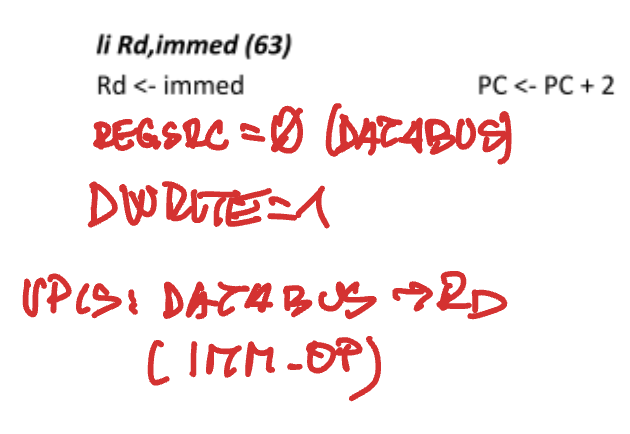 li Rd,immed (63)
Rd <- immed PC <- PC + 2
REGSRC = 0 (DATABUS)
DWRITE=1
UPIS: DATABUS → RD
(IMM-OP)